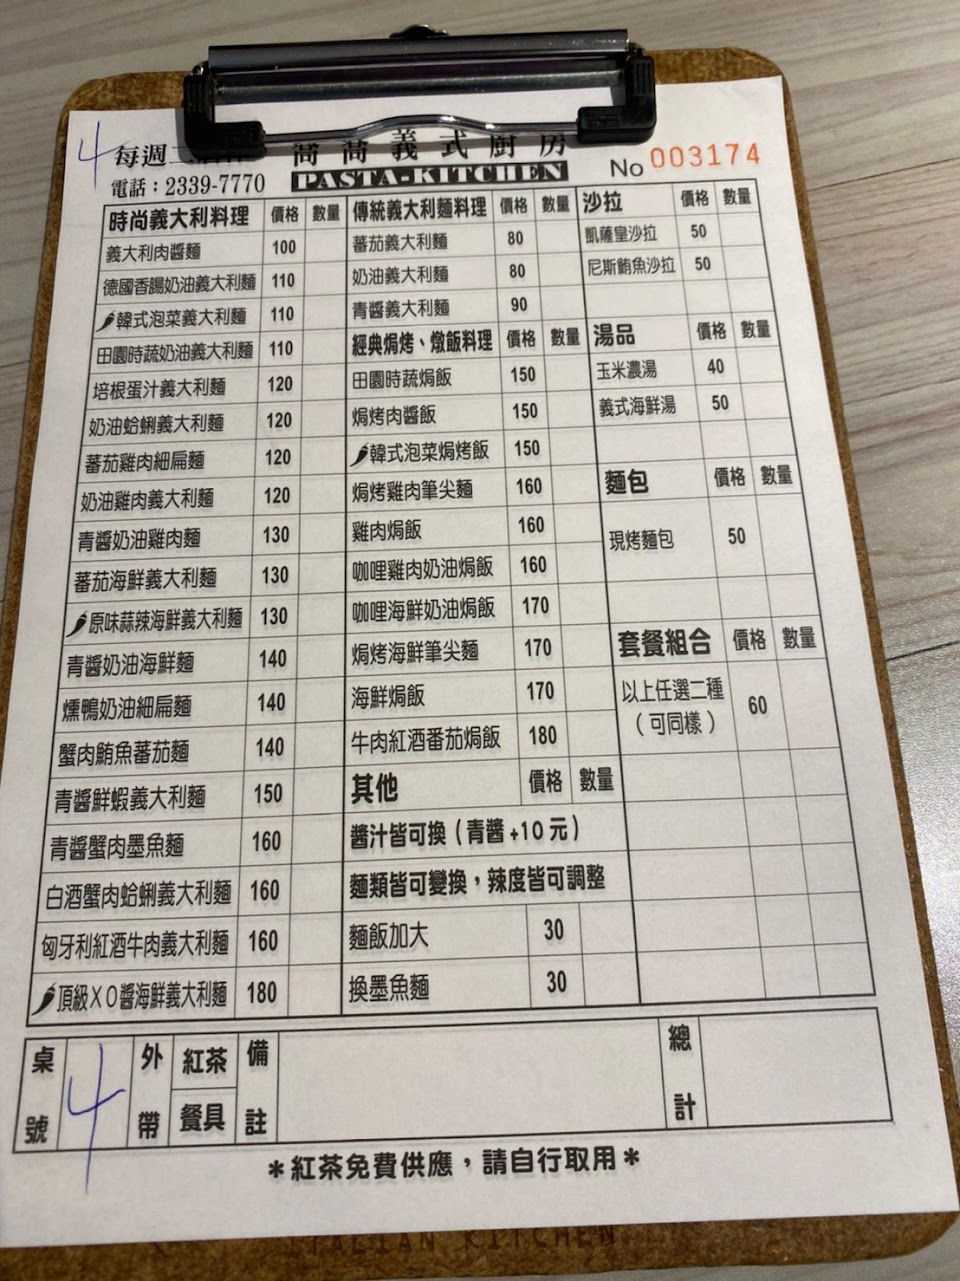 4
每週二
喬喬義式廚房
No 003174
電話：2339-7770
PASTA-KITCHEN
時尚義大利料理 價格 數量
義大利肉醬麵 100
德國香腸奶油義大利麵 110
韓式泡菜義大利麵 110
田園時蔬奶油義大利麵 110
培根蛋汁義大利麵 120
奶油蛤蜊義大利麵 120
蕃茄雞肉細扁麵 120
奶油雞肉義大利麵 120
青醬奶油雞肉麵 130
蕃茄海鮮義大利麵 130
原味蒜辣海鮮義大利麵 130
青醬奶油海鮮麵 140
燻鴨奶油細扁麵 140
蟹肉鮪魚蕃茄麵 140
青醬鮮蝦義大利麵 150
青醬蟹肉墨魚麵 160
白酒蟹肉蛤蜊義大利麵 160
匈牙利紅酒牛肉義大利麵 160
頂級XO醬海鮮義大利麵 180
傳統義大利麵料理 價格 數量
蕃茄義大利麵 80
奶油義大利麵 80
青醬義大利麵 90
經典焗烤、燉飯料理 價格 數量
田園時蔬焗飯 150
焗烤肉醬飯 150
韓式泡菜焗烤飯 150
焗烤雞肉筆尖麵 160
雞肉焗飯 160
咖哩雞肉奶油焗飯 160
咖哩海鮮奶油焗飯 170
焗烤海鮮筆尖麵 170
海鮮焗飯 170
牛肉紅酒番茄焗飯 180
其他 價格 數量
醬汁皆可換（青醬+10元）
麵類皆可變換，辣度皆可調整
麵飯加大 30
換墨魚麵 30
沙拉 價格 數量
凱薩皇沙拉 50
尼斯鮪魚沙拉 50
湯品 價格 數量
玉米濃湯 40
義式海鮮湯 50
麵包 價格 數量
現烤麵包 50
套餐組合 價格 數量
以上任選二種 60
（可同樣）
桌號 4 外帶 紅茶 餐具 備註 總計
＊紅茶免費供應，請自行取用＊
ITALIAN KITCHEN